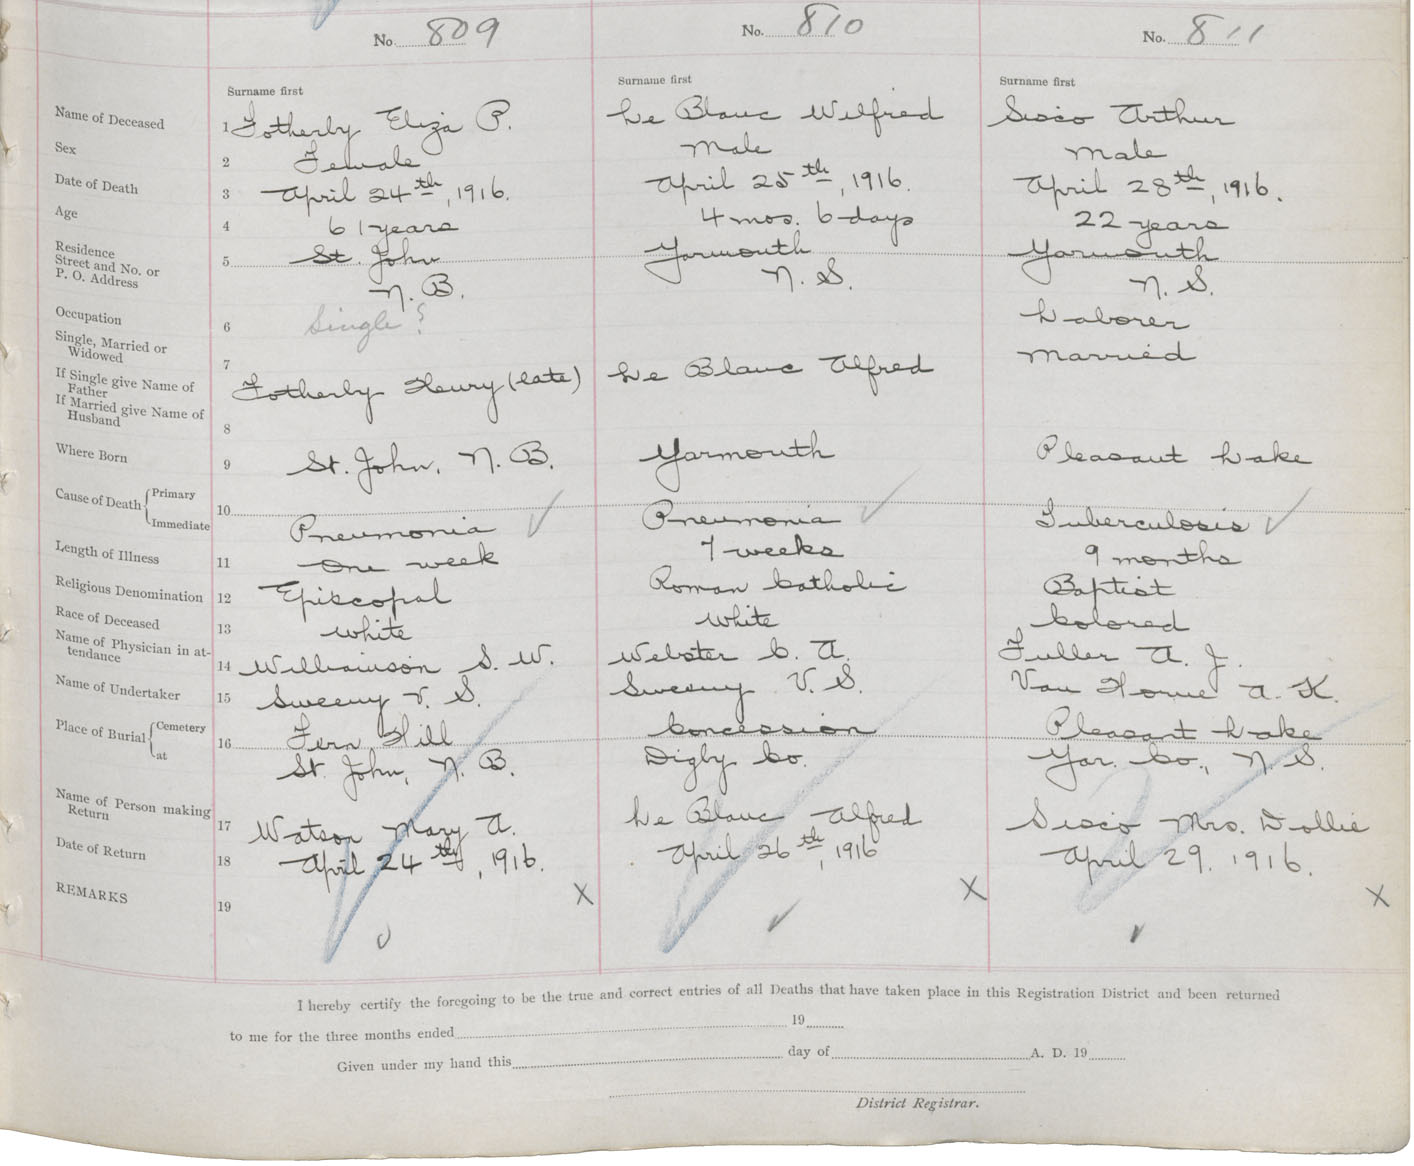 No. 809 No. 810 No. 811
Surname first Surname first Surname first
Name of Deceased 1 Fotherby Eliza P. Le Blanc Wilfred Sisco Arthur
Sex 2 Female Male Male
Date of Death 3 April 24th, 1916. April 25th, 1916. April 28th, 1916.
Age 4 61 years 4 mos. 6 days 22 years
Residence
Street and No. or
P. O. Address 5 St. John Yarmouth Yarmouth
N. B. N. S. N. S.
Occupation 6 Laborer
Single, Married or
Widowed 7 Single? Married
If Single give Name of
Father Fotherby Henry (late) Le Blanc Alfred
If Married give Name of
Husband 8
Where Born 9 St. John, N. B. Yarmouth Pleasant Lake
Cause of Death Primary 10
Immediate Pneumonia Pneumonia Tuberculosis
Length of Illness 11 One week 7 weeks 9 months
Religious Denomination 12 Episcopal Roman Catholic Baptist
Race of Deceased 13 White White Colored
Name of Physician in at-
tendance 14 Williamson S. W. Webster C. A. Fuller A. J.
Name of Undertaker 15 Sweeny V. S. Sweeny V. S. Van Horne A. K.
Place of Burial Cemetery 16 Fern Hill Concession Pleasant Lake
at St. John, N. B. Digby Co. Yar. Co., N. S.
Name of Person making
Return 17 Watson Mary A. Le Blanc Alfred Sisco Mrs. Dollie
Date of Return 18 April 24th, 1916. April 26th, 1916 April 29. 1916.
REMARKS 19 X X X
I hereby certify the foregoing to be the true and correct entries of all Deaths that have taken place in this Registration District and been returned
to me for the three months ended 19
Given under my hand this day of A. D. 19
District Registrar.